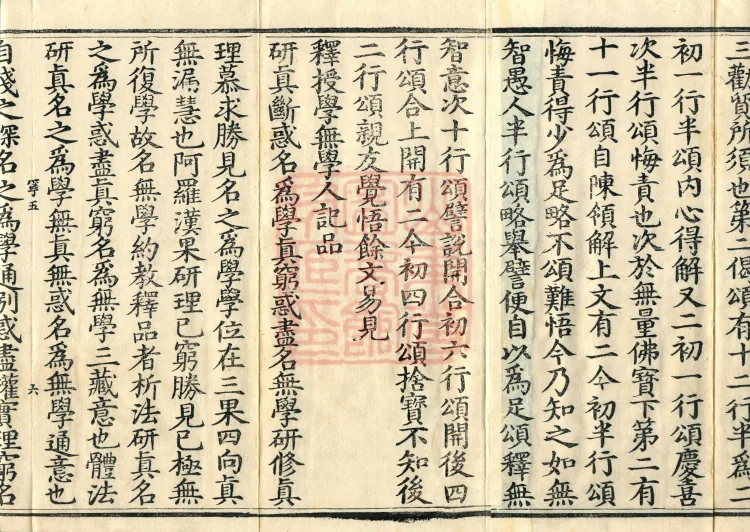 三勸貿所須也第二偈頌有十二行半為二
初一行半頌內心得解又二初一行頌慶喜
次半行頌悔責也次於無量佛寶下第二有
十一行頌自陳領解上文有二今初半行頌
悔責得少為足略不頌難悟今乃知之如無
智愚人半行頌略舉譬便自以為足頌釋無
智意次十行頌譬說開合初六行頌開後四
行頌合上開有二今初四行頌捨寶不知後
二行頌親友覺悟餘文易見
釋授學無學人記品
研真斷惑名為學真窮惑盡名無學研修真
理慕求勝見名之為學學位在三果四向真
無漏慧也阿羅漢果研理已窮勝見已極無
所復學故名無學約教釋品者析法研真名
之為學惑盡真窮名為無學三藏意也體法
研真名之為學無真無惑名為無學通意也
寧五
六
自淺之深名之為學通別惑盡權實理窮名